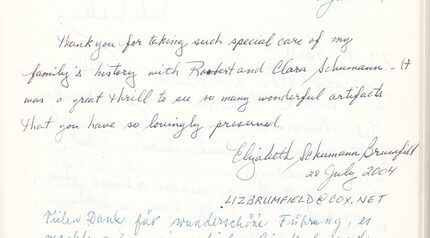 Thank you for taking such special care of my
family's history with Robert and Clara Schumann. It
was a great thrill to see so many wonderful artifacts
that you have so lovingly preserved.
Elizabeth Schumann Brumfield
28 July 2004
LIZBRUMFIELD@COX.NET
Vielen Dank für wunderschöne Führung, es